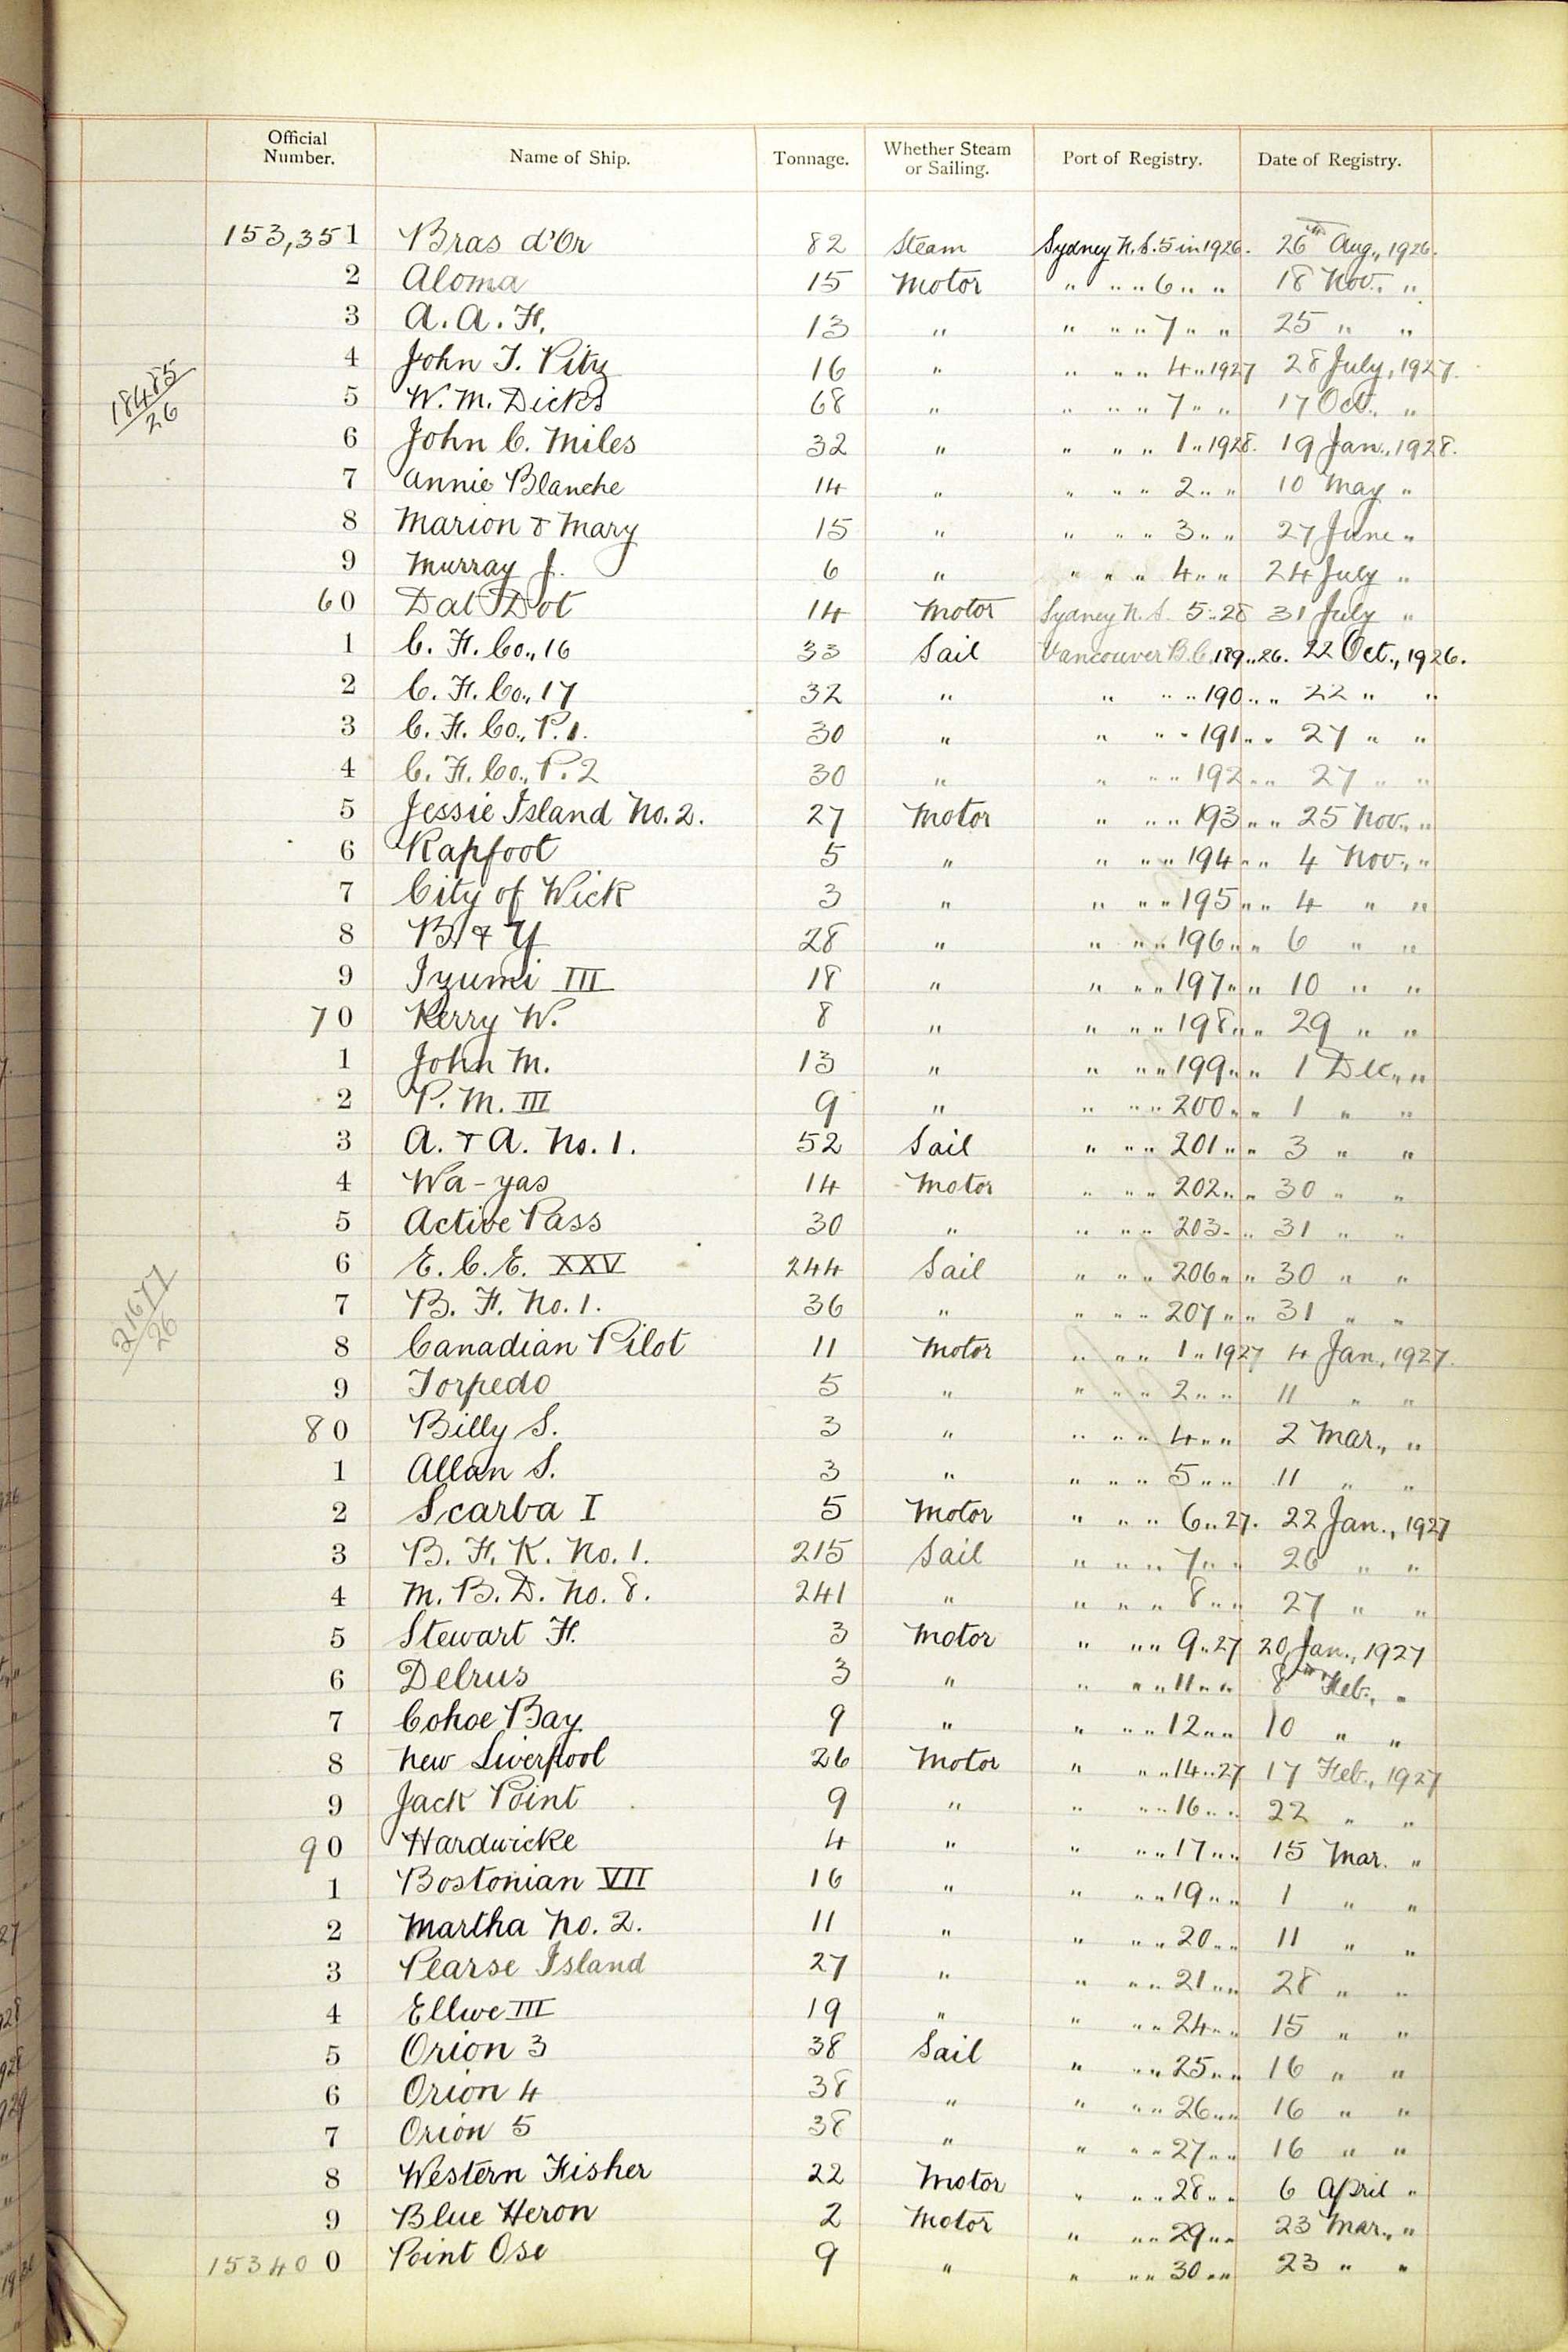 Official Number. Name of Ship. Tonnage. Whether Steam or Sailing. Port of Registry. Date of Registry.
153,351 Bras d'Or 82 Steam Sydney N.S. 5 in 1926. 26th Aug., 1926.
2 Aloma 15 Motor " " " 6 " " 18 Nov., "
3 A. A. H. 13 " " " " 7 " " 25 " "
4 John T. 16 " " " " 4 " 1927 28 July, 1927.
18485/26
5 W. M. Dicks 68 " " " " 7 " " 17 Oct., "
6 John C. Miles 32 " " " " 1 " 1928. 19 Jan., 1928.
7 Annie Blanche 14 " " " " 2 " " 10 May "
8 Marion & Mary 15 " " " " 3 " " 27 June "
9 Murray J. 6 " " " " 4 " " 24 July "
60 Dal Dot 14 Motor Sydney N.S. 5 " 28 31 July "
1 C. F. Co., 16 33 Sail Vancouver B.C. 189 " 26. 22 Oct., 1926.
2 C. F. Co., 17 32 " " " " 190 " " 22 " "
3 C. F. Co., P. 1. 30 " " " " 191 " " 27 " "
4 C. F. Co., P. 2 30 " " " " 192 " " 27 " "
5 Jessie Island No. 2. 27 Motor " " " 193 " " 25 Nov., "
6 Kapfoot 5 " " " " 194 " " 4 Nov., "
7 City of Wick 3 " " " " 195 " " 4 " "
8 B & Y 28 " " " " 196 " " 6 " "
9 Izumi III 18 " " " " 197 " " 10 " "
70 Kerry W. 8 " " " " 198 " " 29 " "
1 John M. 13 " " " " 199 " " 1 Dec., "
2 P. M. III 9 " " " " 200 " " 1 " "
3 A. & A. No. 1. 52 Sail " " " 201 " " 3 " "
4 Wa-yas 14 Motor " " " 202 " " 30 " "
5 Active Pass 30 " " " " 203 " " 31 " "
6 E. C. E. XXV 244 Sail " " " 206 " " 30 " "
21677/26
7 B. F. No. 1. 36 " " " " 207 " " 31 " "
8 Canadian Pilot 11 Motor " " " 1 " 1927 4 Jan., 1927.
9 Torpedo 5 " " " " 2 " " 11 " "
80 Billy S. 3 " " " " 4 " " 2 Mar., "
1 Allan S. 3 " " " " 5 " " 11 " "
2 Scarba I 5 Motor " " " 6 " 27. 22 Jan., 1927
3 B. F. K. No. 1. 215 Sail " " " 7 " " 26 " "
4 M. B. D. No. 8. 241 " " " " 8 " " 27 " "
5 Stewart F. 3 Motor " " " 9 " 27 20 Jan., 1927
6 Delrus 3 " " " " 11 " " 8th Feb., "
7 Cohoe Bay 9 " " " " 12 " " 10 " "
8 New Liverpool 26 Motor " " " 14 " 27 17 Feb., 1927
9 Jack Point 9 " " " " 16 " " 22 " "
90 Hardwicke 4 " " " " 17 " " 15 Mar. "
1 Bostonian VII 16 " " " " 19 " " 1 " "
2 Martha No. 2. 11 " " " " 20 " " 11 " "
3 Pearse Island 27 " " " " 21 " " 28 " "
4 Ellwe III 19 " " " " 24 " " 15 " "
5 Orion 3 38 Sail " " " 25 " " 16 " "
6 Orion 4 38 " " " " 26 " " 16 " "
7 Orion 5 38 " " " " 27 " " 16 " "
8 Western Fisher 22 Motor " " " 28 " " 6 April "
9 Blue Heron 2 Motor " " " 29 " " 23 Mar., "
153400 Point Ose 9 " " " " 30 " " 23 " "